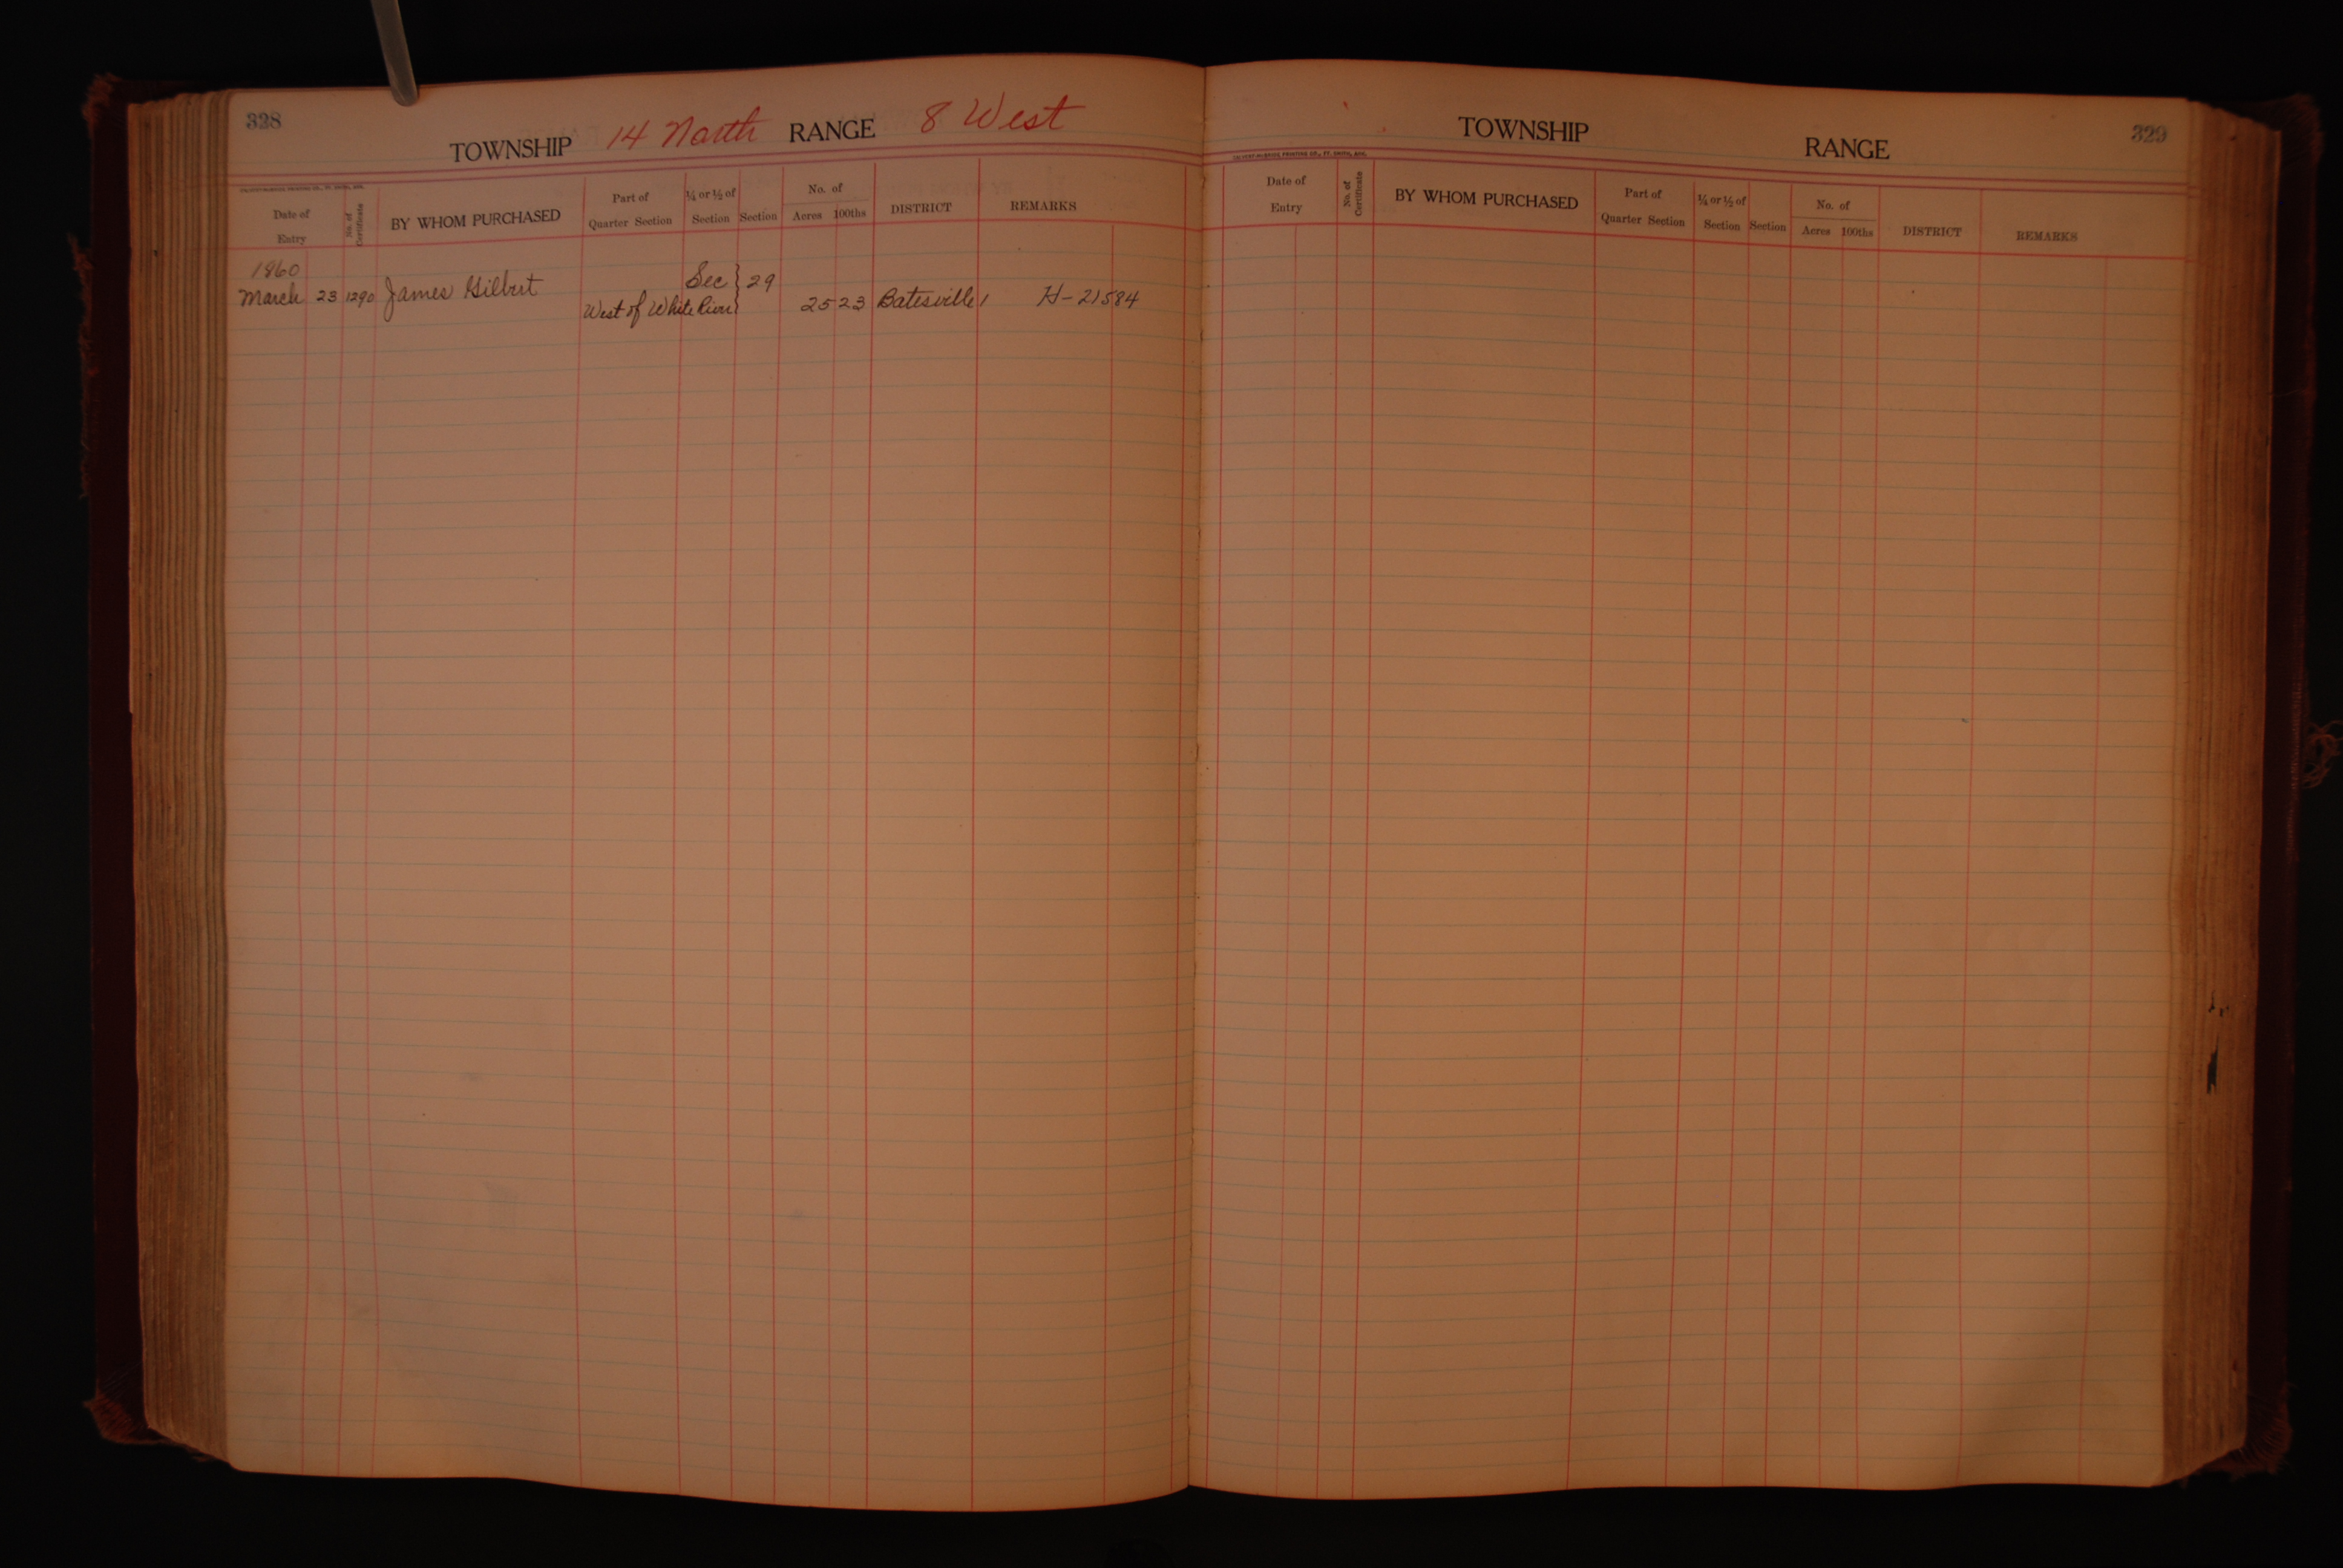 328
TOWNSHIP 14 North RANGE 8 West
CALVERT-McBRIDE PRINTING CO., FT. SMITH, ARK.
Date of Entry No. of Certificate BY WHOM PURCHASED Part of Quarter Section ¼ or ½ of Section Section No. of Acres 100ths DISTRICT REMARKS
1860
March 23 1290 James Gilbert Sec } 29
West of White River 25 23 Batesville H-21584
TOWNSHIP RANGE 329
CALVERT-McBRIDE PRINTING CO., FT. SMITH, ARK.
Date of Entry No. of Certificate BY WHOM PURCHASED Part of Quarter Section ¼ or ½ of Section Section No. of Acres 100ths DISTRICT REMARKS